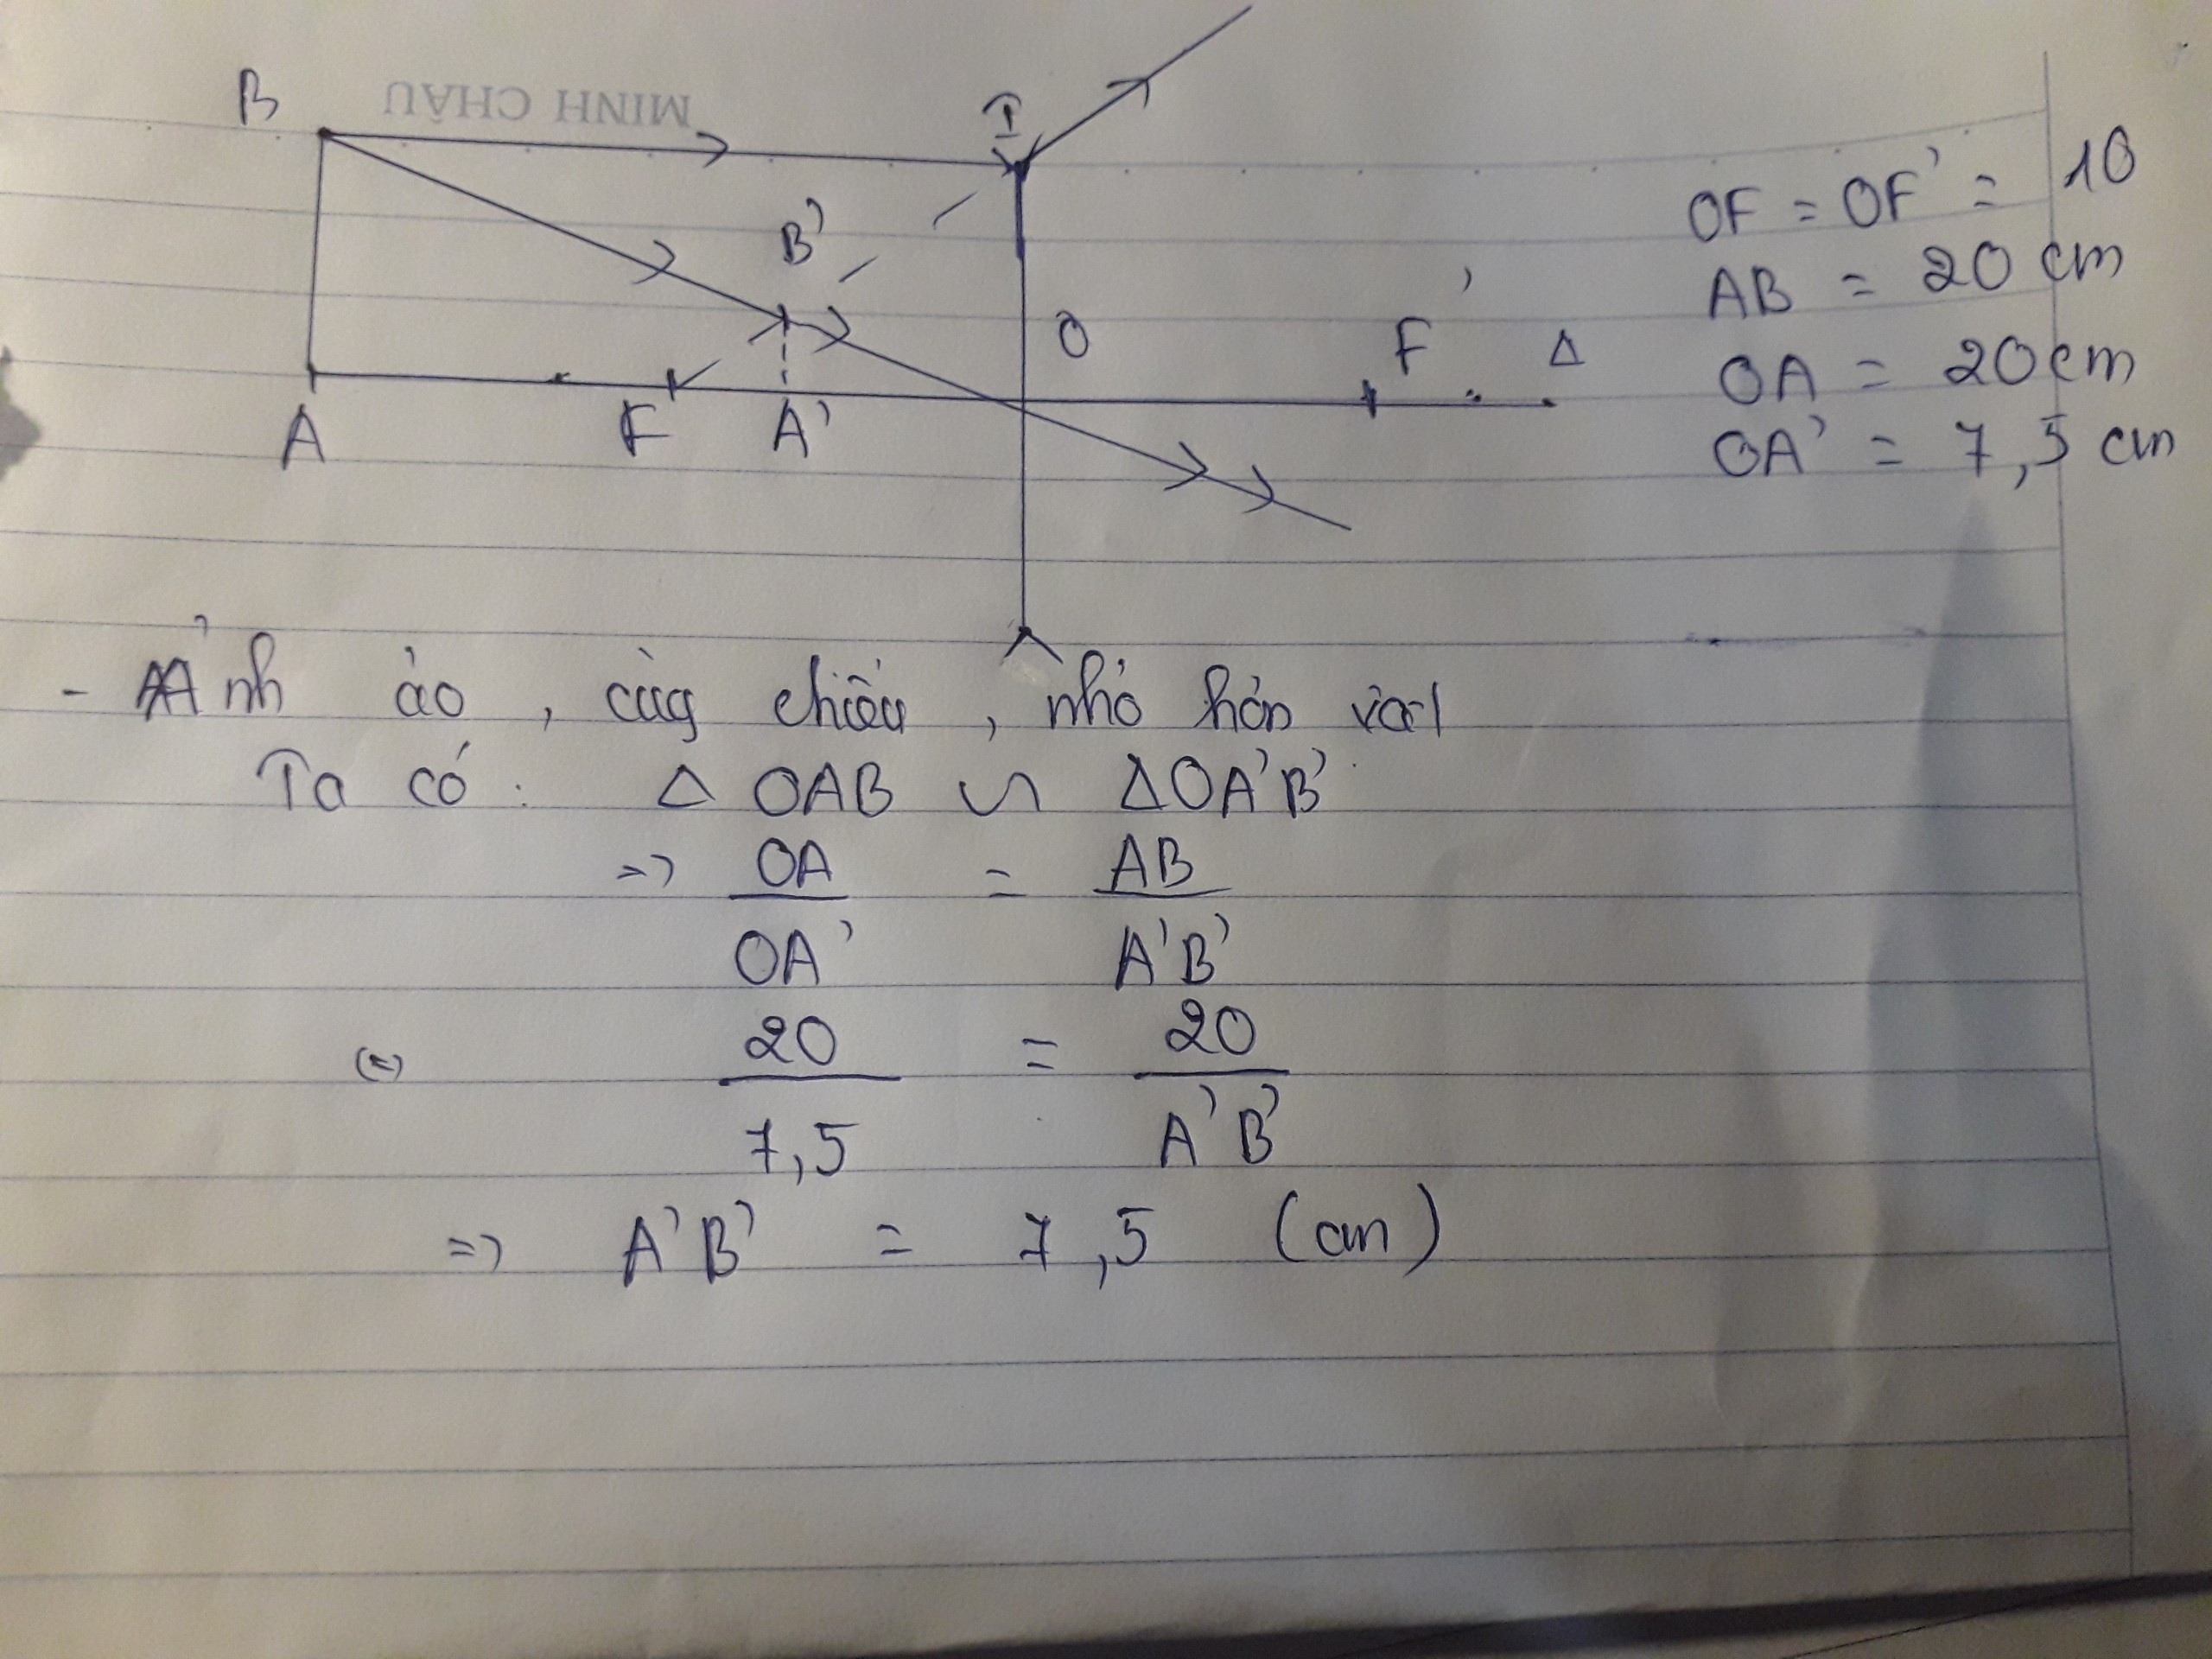 MINH CHÂU
B
I
B'
O
F'
Δ
A
F
A'
OF = OF' = 10
AB = 20 cm
OA = 20cm
OA' = 7,5 cm
- Ảnh ảo, cùg chiều, nhỏ hơn vật
Ta có: Δ OAB ∽ ΔOA'B'
=> OA/OA' = AB/A'B'
(=) 20/7,5 = 20/A'B'
=> A'B' = 7,5 (cm)